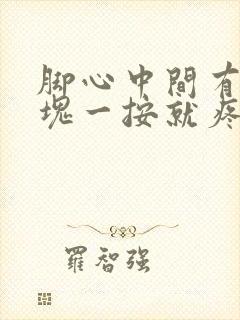 脚心中間有
塊一按就疼
羅智强